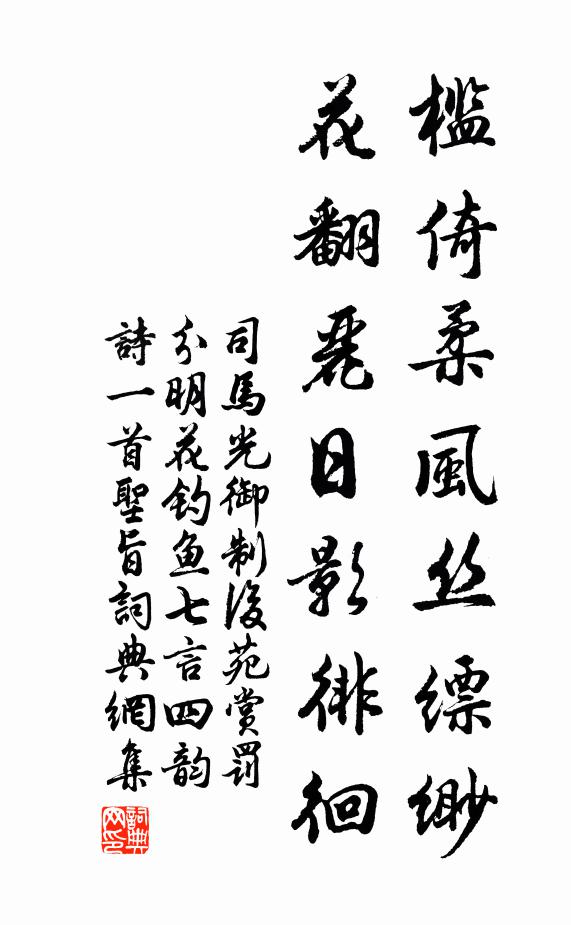 檻倚柔風丝縹緲
花翻麗日影徘徊
司馬光御制後苑赏罰
分明花钓鱼七言四韵
詩一首聖旨詞典網集
詞典网印